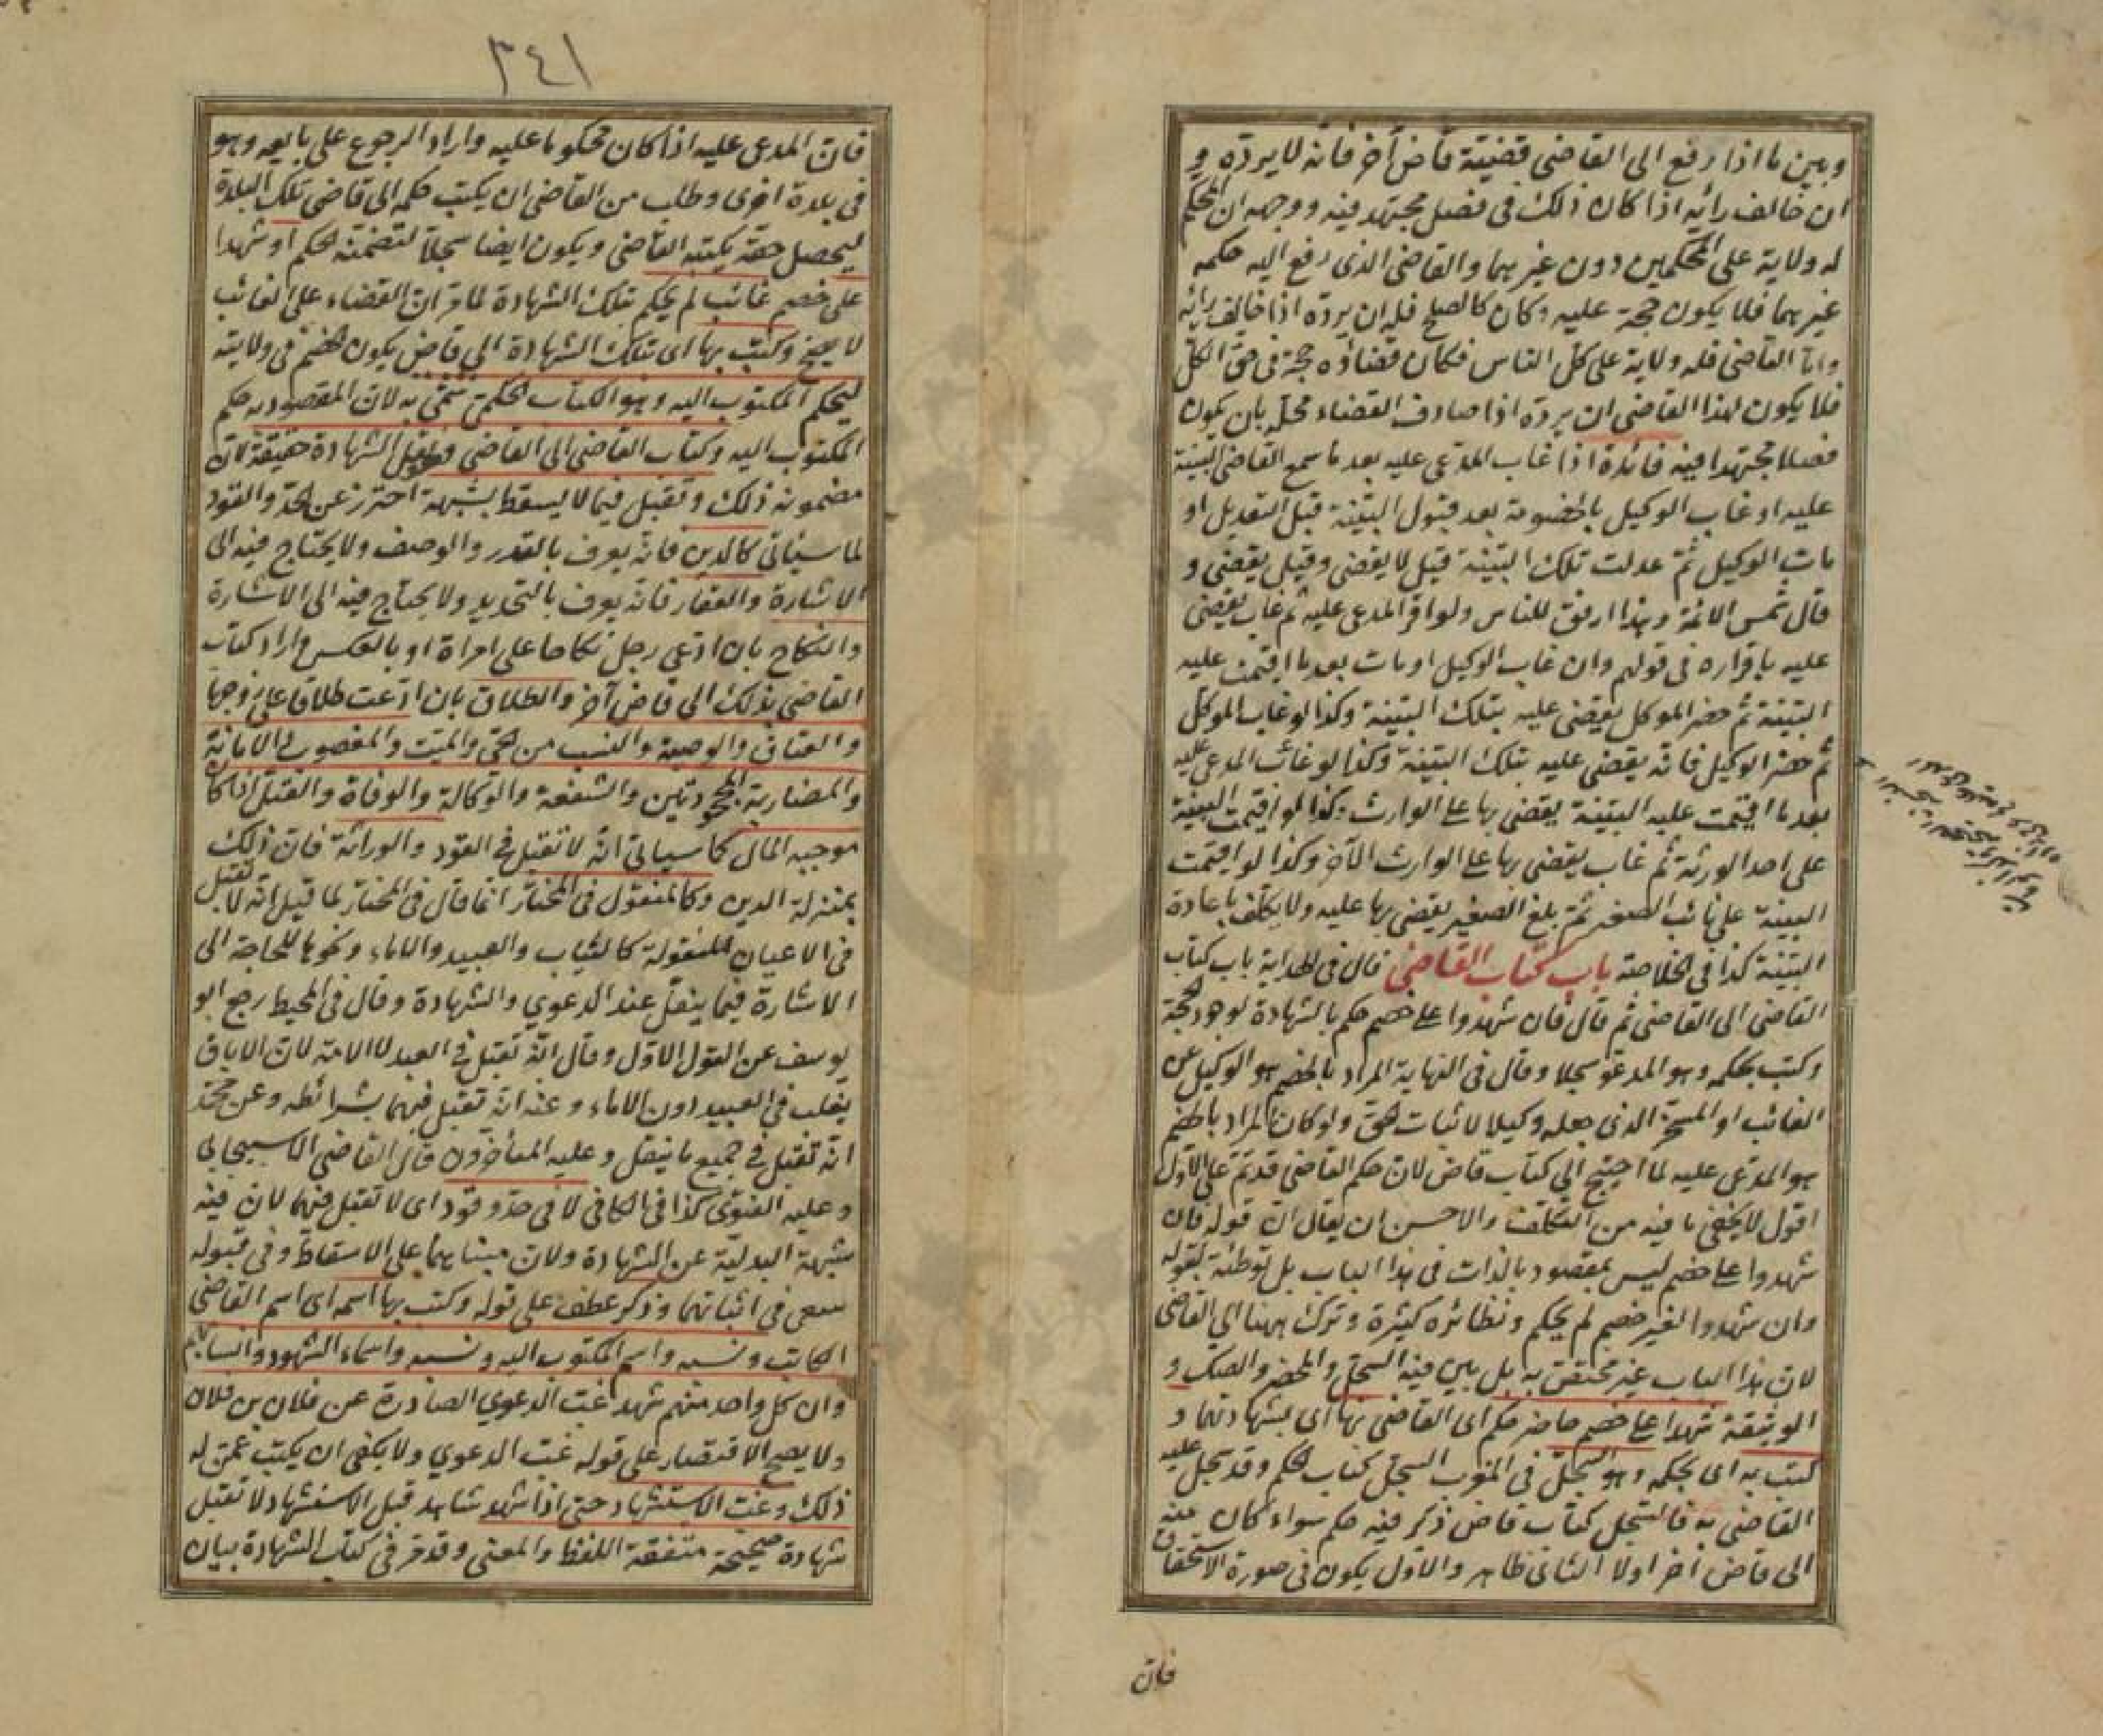 وبين ما اذا رفع الى القاضى قضية قاض آخر فانه لا يرده و
ان خالف رائيه اذا كان ذلك فى فصل مجتهد فيه ووجهه ان المحكم
له ولاية على المحكمين دون غيرهما والقاضى الذى رفع اليه حكمه
غيرهما فلا يكون حجة عليه وكان كالصلح فله ان يرده اذا خالف رائه
واما القاضى فله ولاية على كل الناس فكان قضاؤه حجة فى حق الكل
فلا يكون لهذا القاضى ان يرده اذا صادف القضاء محله بان يكون
فصلا مجتهدا فيه فائدة اذا غاب المدعى عليه بعد ما سمع القاضى البينة
عليه او غاب الوكيل بالخصومة بعد قبول البينة قبل التعديل او
مات الوكيل ثم عدلت تلك البينة قيل لا يقضى وقيل يقضى و
قال شمس الائمة وهذا ارفق للناس ولو اقر المدعى عليه ثم غاب يقضى
عليه باقراره فى قولهم وان غاب الوكيل او مات بعد ما اقيمت عليه
البينة ثم حضر الموكل يقضى عليه بتلك البينة وكذا لو غاب الموكل
ثم حضر الوكيل فانه يقضى عليه بتلك البينة وكذا لو غاب المدعى عليه
بعد ما اقيمت عليه البينة يقضى بها على الوارث وكذا لو اقيمت البينة
على احد الورثة ثم غاب يقضى بها على الوارث الآخر وكذا لو اقيمت
البينة على نائب الصغير ثم بلغ الصغير يقضى بها عليه ولا يكلف باعادة
البينة كذا فى الخلاصة باب كتاب القاضى قال فى الهداية باب كتاب
القاضى الى القاضى ثم قال فان شهدوا على خصم حكم بالشهادة لوجود الحجة
وكتب بحكمه وهو المدعو سجلا وقال فى النهاية المراد بالخصم هو الوكيل عن
الغائب او المسخر الذى جعله وكيلا لاثبات الحق ولو كان المراد بالخصم
هو المدعى عليه لما احتيج الى كتاب قاض لان حكم القاضى قد تم على الاول
اقول لا يخفى ما فيه من التكلف والاحسن ان يقال ان قوله فان
شهدوا على خصم ليس بمقصود بالذات فى هذا الباب بل توطئة لقوله
وان شهدوا لغير خصم لم يحكم ونظائره كثيرة وترك ههنا الى القاضى
لان هذا الباب غير مختص به بل بين فيه السجل والمحضر والصك و
الوثيقة شهدا على خصم حاضر حكم اى القاضى بها اى بشهادتهما و
كتب به اى بحكمه وهو السجل فى المغرب السجل كتاب الحكم وقد سجل عليه
القاضى به فالسجل كتاب قاض ذكر فيه حكم سواء كان منه
الى قاض آخر او لا الثانى ظاهر والاول يكون فى صورة الاستحقاق
فان
٣٤١
فان المدعى عليه اذا كان محكوما عليه واراد الرجوع على بايعه وهو
فى بلدة اخرى وطلب من القاضى ان يكتب حكمه الى قاضى تلك البلدة
ليحصل حقه يكتبه القاضى ويكون ايضا سجلا لتضمنه الحكم او شهدا
على خصم غائب لم يحكم بتلك الشهادة لما مر ان القضاء على الغائب
لا يصح وكتب بها اى بتلك الشهادة الى قاض يكون الخصم فى ولايته
ليحكم المكتوب اليه وهو الكتاب الحكمى سمى به لان المقصود به حكم
المكتوب اليه وكتاب القاضى الى القاضى الشهادة حقيقة لان
مضمونه ذلك وتقبل فيما لا يسقط بشبهة احترز عن الحد والقود
لما سيأتى كالدين فانه يعرف بالقدر والوصف ولا يحتاج فيه الى
الاشارة والعقار فانه يعرف بالتحديد ولا يحتاج فيه الى الاشارة
والنكاح بان ادعى رجل نكاحا على امراة او بالعكس واراد كتاب
القاضى بذلك الى قاض آخر والطلاق بان ادعت طلاقا على زوجها
والعتاق والوصية والنسب من الحى والميت والمغصوب والامانة
والمضاربة المجحودتين والشفعة والوكالة والوفاة والقتل اذا كان
موجبه المال كما سيأتى انه لا تقبل فى القود والوراثة فان ذلك
بمنزلة الدين وكالمنقول فى المختار انما قال فى المختار لما قيل انه لا تقبل
فى الاعيان المنقولة كالثياب والعبيد والاماء ونحوها للحاجة الى
الاشارة فيما ينقل عند الدعوى والشهادة وقال فى المحيط رجع ابو
يوسف عن القول الاول وقال انه تقبل فى العبد لا الامة لان الاباق
يغلب فى العبيد دون الاماء وعنه انه تقبل فيهما بشرائطه وعن محمد
انه تقبل فى جميع ما ينقل وعليه المتأخرون قال القاضى الاسبيجابى
وعليه الفتوى كذا فى الكافى لا فى حد وقود اى لا تقبل فيهما لان فيه
شبهة البدلية عن الشهادة ولان مبناهما على الاسقاط وفى قبوله
سعى فى اثباتهما وذكر عطف على قوله وكتب بها اسمه اى اسم القاضى
الكاتب ونسبه واسم المكتوب اليه ونسبه واسماء الشهود وانسابهم
وان كل واحد منهم شهد غب الدعوى الصادرة عن فلان بن فلان
ولا يصح الاقتصار على قوله غب الدعوى ولا يكفى ان يكتب
ذلك وغب الاستشهاد حتى اذا شهد شاهد قبل الاستشهاد لا تقبل
شهادة صحيحة متفقة اللفظ والمعنى وقد مر فى كتاب الشهادة بيان